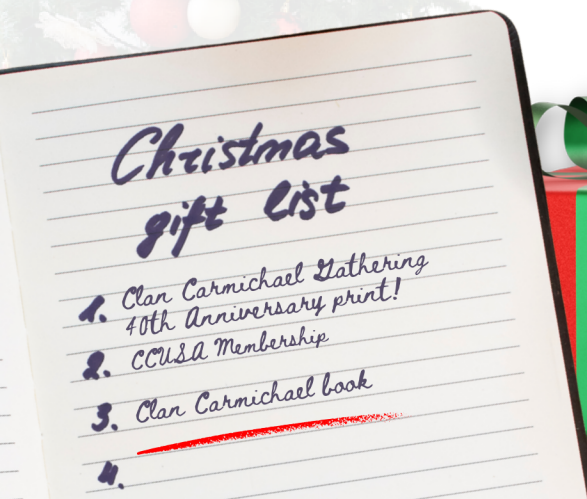 Christmas
gift list
1. Clan Carmichael Gathering
40th Anniversary print!
2. CCUSA Membership
3. Clan Carmichael book
4.